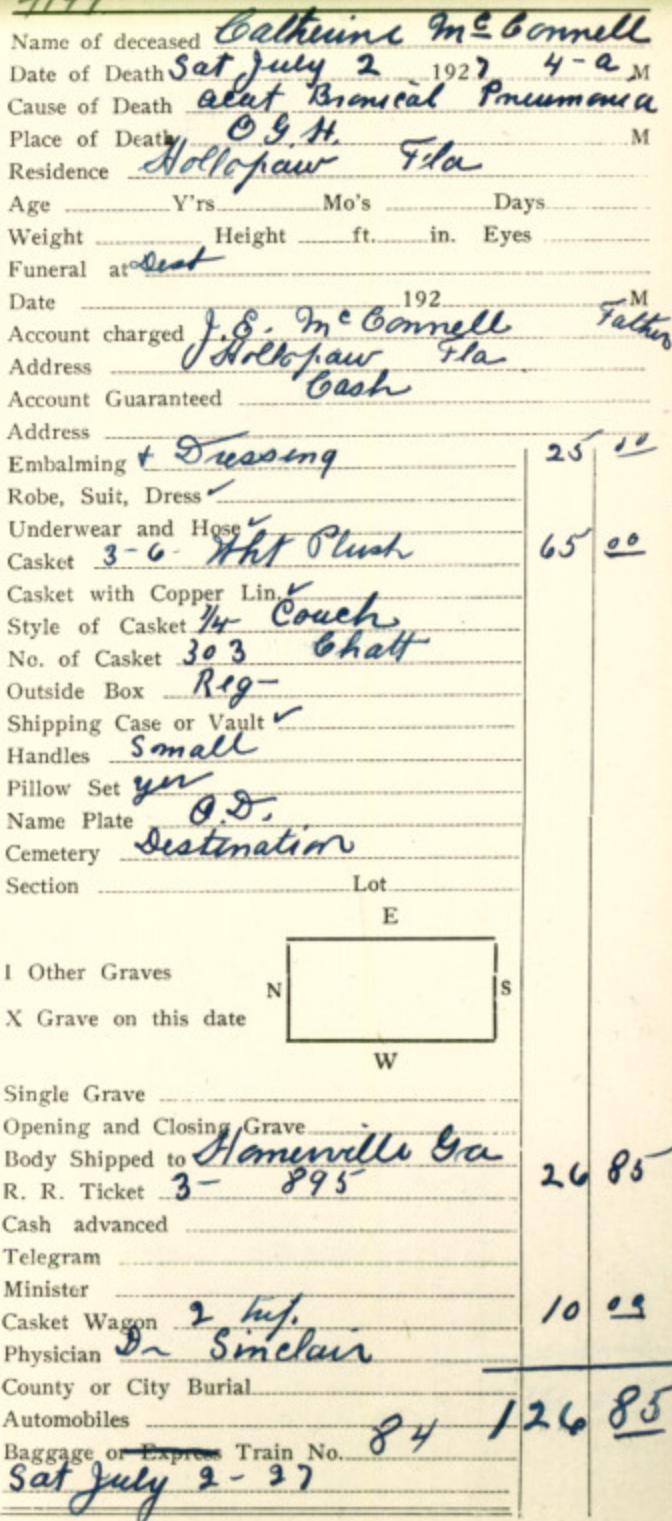 Name of deceased Catherine McConnell
Date of Death Sat July 2 1927 4-a M
Cause of Death acut Bronical Pneumonia
Place of Death O.G.H. M
Residence Hollopaw Fla
Age Y'rs Mo's Days
Weight Height ft. in. Eyes
Funeral at Dest
Date 192 M
Account charged J.E. McConnell Father
Address Hollopaw Fla
Account Guaranteed Cash
Address
Embalming + Dressing 25 00
Robe, Suit, Dress ✓
Underwear and Hose ✓
Casket 3-6- Wht Plush 65 00
Casket with Copper Lin. ✓
Style of Casket 1/4 Couch
No. of Casket 303 Chatt
Outside Box Reg-
Shipping Case or Vault ✓
Handles Small
Pillow Set yes
Name Plate O.D.
Cemetery Destination
Section Lot
E
I Other Graves
N S
X Grave on this date
W
Single Grave
Opening and Closing Grave
Body Shipped to Homerville Ga
R. R. Ticket 3- 895 26 85
Cash advanced
Telegram
Minister
Casket Wagon 2 10 00
Physician Dr Sinclair
County or City Burial
Automobiles 126 85
Baggage or Express Train No. 84
Sat July 2-27